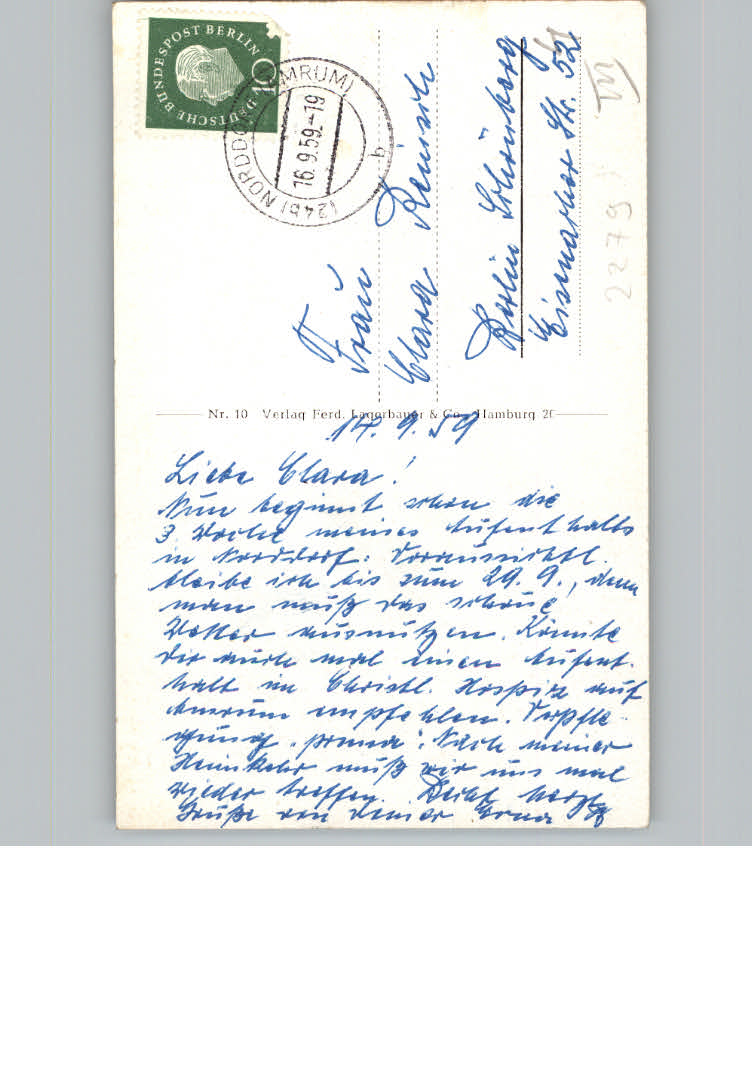 DEUTSCHE BUNDESPOST BERLIN
10
(24b) NORDDORF (AMRUM)
16.9.59.-19
b
Frau
Clara
Berlin Schöneberg
Eisenacher Str. 52
III
2279
Nr. 10 Verlag Ferd. Lagerbauer & Co., Hamburg 26
14. 9. 59
Liebe Clara!
Nun beginnt schon die
3. Woche meines Aufenthalts
in Norddorf. Voraussichtl.
bleibe ich bis zum 29. 9., denn
man muß das schöne
Wetter ausnutzen. Könnte
Dir auch mal einen Aufent-
halt im Christl. Hospiz auf
Amrum empfehlen. Verpfle-
gung "prima". Nach meiner
Heimkehr muß wir uns mal
wieder treffen. Recht herzl.
Grüße von Deiner Erna